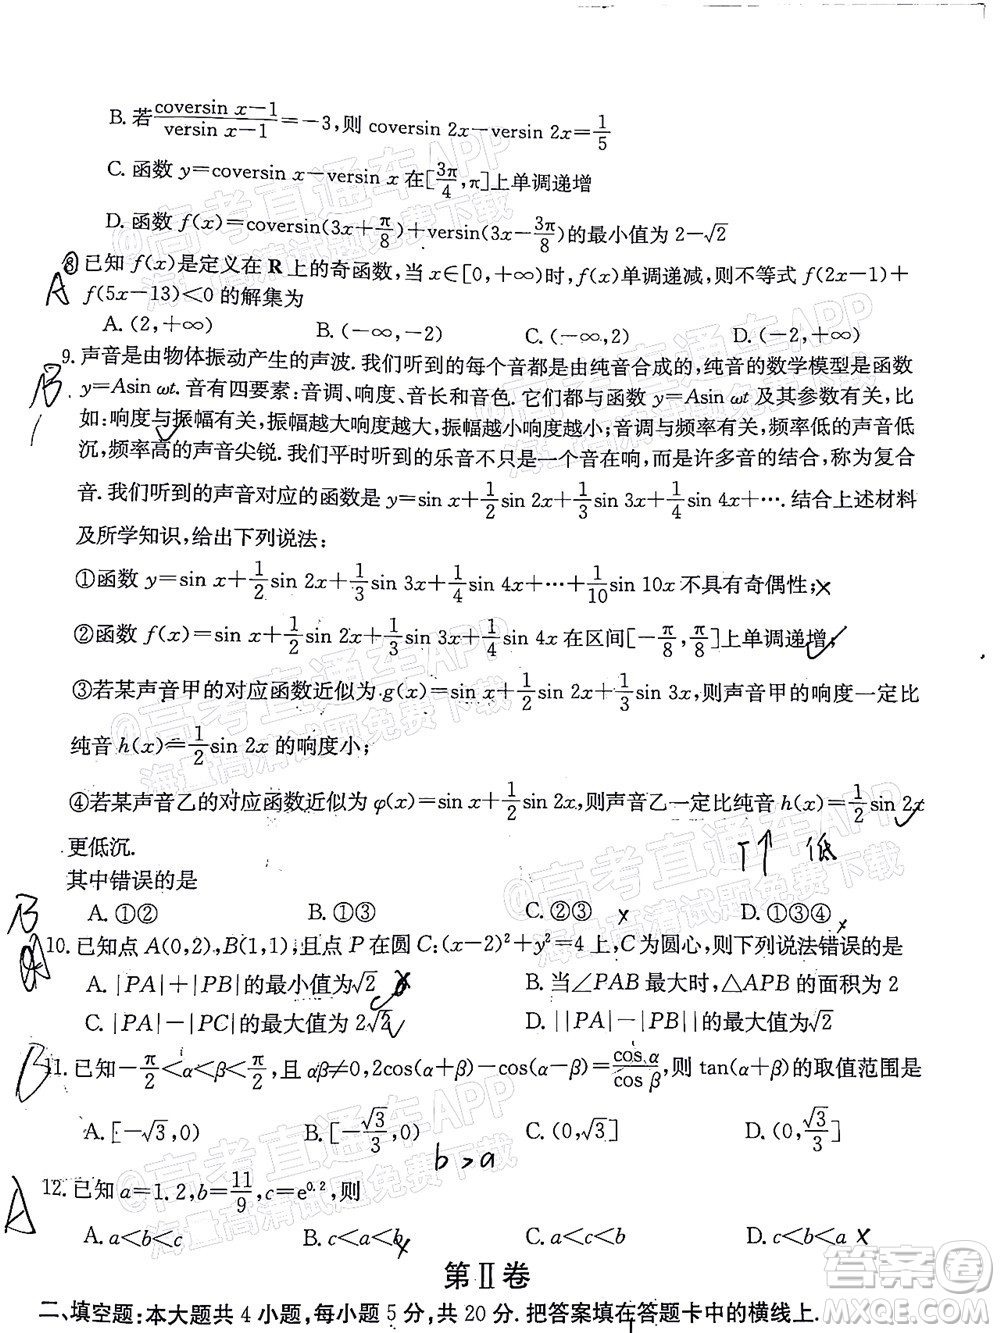 B. 若 (coversin x−1)/(versin x−1)=−3,则 coversin 2x−versin 2x=1/5
C. 函数 y=coversin x−versin x 在[3π/4,π]上单调递增
D. 函数 f(x)=coversin(3x+π/8)+versin(3x−3π/8)的最小值为 2−√2
8. 已知 f(x)是定义在 R 上的奇函数,当 x∈[0,+∞)时,f(x)单调递减,则不等式 f(2x−1)+
A
f(5x−13)<0 的解集为
A. (2,+∞) B. (−∞,−2) C. (−∞,2) D. (−2,+∞)
9. 声音是由物体振动产生的声波. 我们听到的每个音都是由纯音合成的,纯音的数学模型是函数
B
y=Asin ωt. 音有四要素:音调、响度、音长和音色. 它们都与函数 y=Asin ωt 及其参数有关,比
如:响度与振幅有关,振幅越大响度越大,振幅越小响度越小;音调与频率有关,频率低的声音低
沉,频率高的声音尖锐. 我们平时听到的乐音不只是一个音在响,而是许多音的结合,称为复合
音. 我们听到的声音对应的函数是 y=sin x+1/2 sin 2x+1/3 sin 3x+1/4 sin 4x+···. 结合上述材料
及所学知识,给出下列说法:
①函数 y=sin x+1/2 sin 2x+1/3 sin 3x+1/4 sin 4x+···+1/10 sin 10x 不具有奇偶性; ×
②函数 f(x)=sin x+1/2 sin 2x+1/3 sin 3x+1/4 sin 4x 在区间[−π/8,π/8]上单调递增; ✓
③若某声音甲的对应函数近似为 g(x)=sin x+1/2 sin 2x+1/3 sin 3x,则声音甲的响度一定比
纯音 h(x)=1/2 sin 2x 的响度小;
④若某声音乙的对应函数近似为 φ(x)=sin x+1/2 sin 2x,则声音乙一定比纯音 h(x)=1/2 sin 2x
更低沉.
T↑ 低
其中错误的是
A. ①② B. ①③ C. ②③ × D. ①③④ ×
B
10. 已知点 A(0,2),B(1,1),且点 P 在圆 C:(x−2)²+y²=4 上,C 为圆心,则下列说法错误的是
A
A. |PA|+|PB|的最小值为√2 B. 当∠PAB 最大时,△APB 的面积为 2
C. |PA|−|PC|的最大值为 2√2 D. ||PA|−|PB||的最大值为√2
11. 已知−π/2<α<β<π/2,且 αβ≠0,2cos(α+β)−cos(α−β)=cos α/cos β,则 tan(α+β)的取值范围是
B
A. [−√3,0) B. [−√3/3,0) C. (0,√3] D. (0,√3/3]
b>a
12. 已知 a=1.2,b=11/9,c=e^0.2,则
A
A. a<b<c B. c<a<b × C. a<c<b D. c<b<a ×
第Ⅱ卷
二、填空题:本大题共 4 小题,每小题 5 分,共 20 分. 把答案填在答题卡中的横线上.
@高考直通车APP
海量高清试题免费下载
@高考直通车APP
海量高清试题免费下载
@高考直通车APP
海量高清试题免费下载
@高考直通车APP
海量高清试题免费下载
@高考直通车APP
海量高清试题免费下载
@高考直通车APP
海量高清试题免费下载
答案圈
MXQE.COM